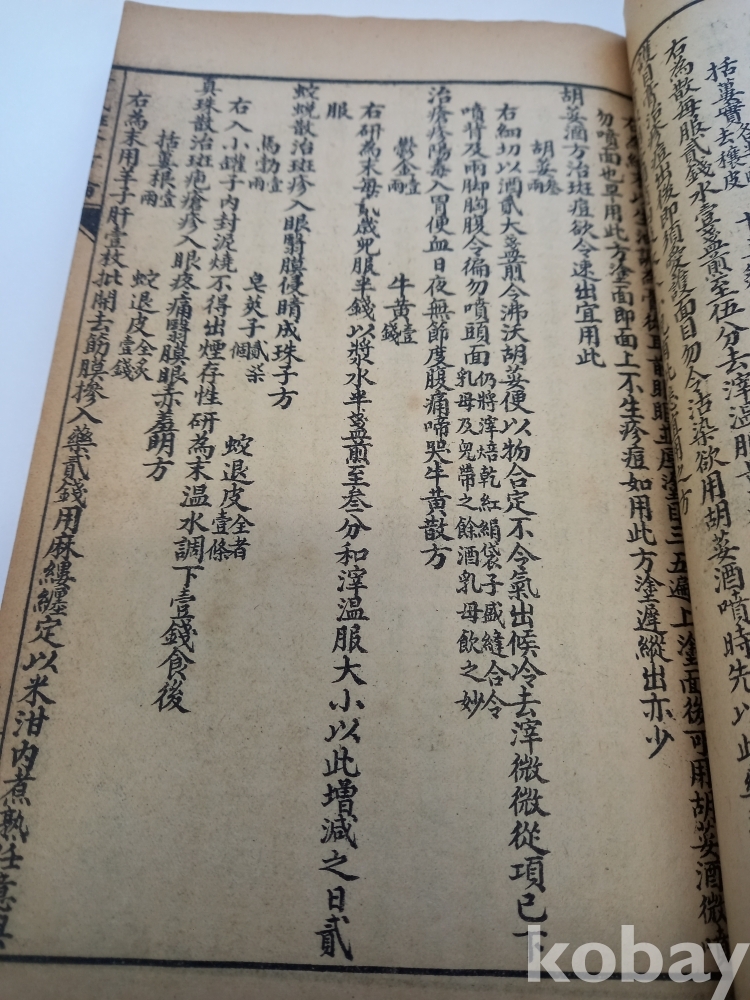 括蔞實去穰皮
右為散每服貳錢水壹盞煎至伍分去滓溫服
護目膏治疹痘出後即須愛護面目勿令沾染欲用胡荽酒噴時先以此
塗面後可用胡荽酒微
勿噴面也早用此方塗面即面上不生疹痘如用此方塗遲縱出亦少
胡荽酒方治斑痘欲令速出宜用此
胡荽叁兩
右細切以酒貳大盞煎令沸沃胡荽便以物合定不令氣出候冷去滓微微從項已下
噴背及兩脚胸腹令徧勿噴頭面仍將滓焙乾紅絹袋子盛縫合令乳母及兒帶之餘酒乳母飲之妙
治瘡疹陽毒入胃便血日夜無節度腹痛啼哭牛黃散方
鬱金壹兩 牛黃壹錢
右研為末每貳歲兒服半錢以漿水半盞煎至叁分和滓溫服大小以此增減之日貳
服
蛇蛻散治斑疹入眼翳膜侵睛成珠子方
馬勃壹兩 皂莢子貳柒個 蛇退皮全者壹條
右入小罐子內封泥燒不得出煙存性研為末溫水調下壹錢食後
真珠散治斑疱瘡疹入眼疼痛翳膜眼赤羞明方
括蔞根壹兩 蛇退皮全炙壹錢
右為末用羊子肝壹枚批開去筋膜摻入藥貳錢用麻縷纏定以米泔內煮熟任意與
kobay